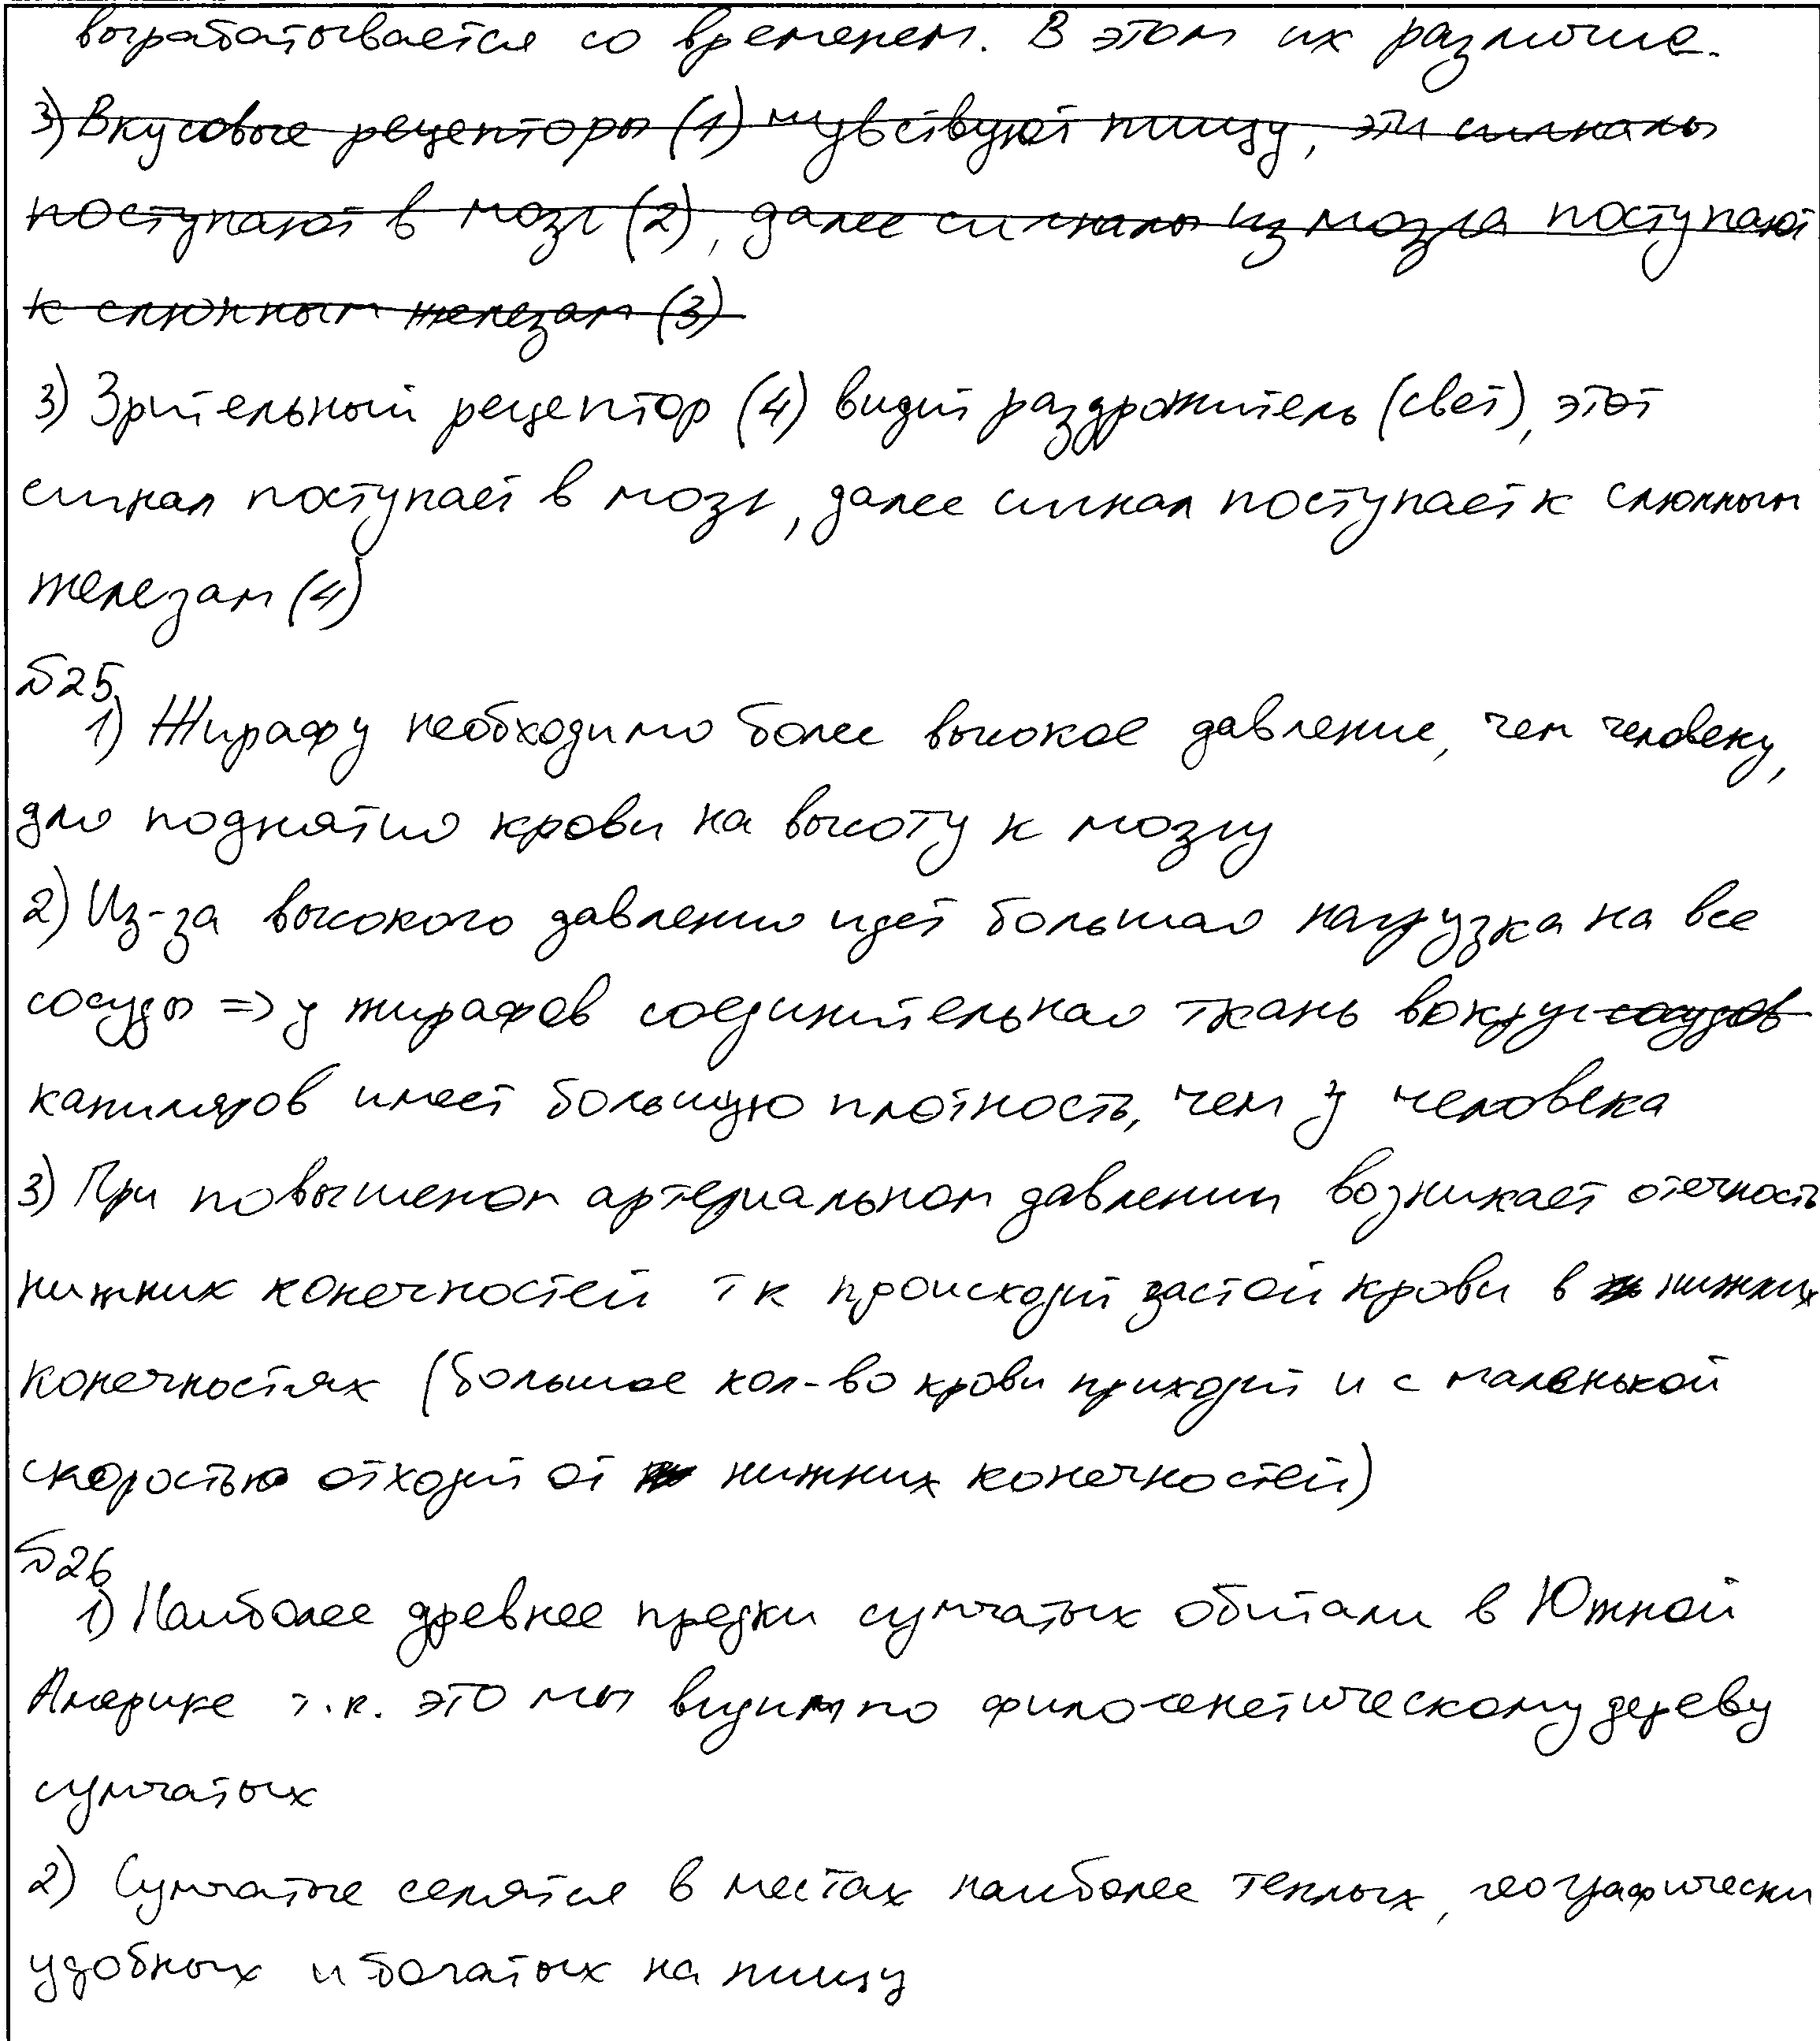 вырабатывается со временем. В этом их различие.
3) Вкусовые рецепторы (1) чувствуют пищу, эти сигналы
поступают в мозг (2), далее сигналы из мозга поступают
к слюнным железам (3)
3) Зрительный рецептор (4) видит раздрожитель (свет), этот
сигнал поступает в мозг, далее сигнал поступает к слюнным
железам (4)
№25
1) Жирафу необходимо более высокое давление, чем человеку,
для поднятия крови на высоту к мозгу
2) Из-за высокого давления идет большая нагрузка на все
сосуды => у жирафов соединительная ткань вокруг сосудов
капиляров имеет большую плотность, чем у человека
3) При повышеном артериальном давлении возникает отечность
нижних конечностей т к происходит застой крови в нижних
конечностях (большое кол-во крови приходит и с маленькой
скоростью отходит от нижних конечностей)
№26
1) Наиболее древнее предки сумчатых обитали в Южной
Америке т.к. это мы видим по филогенетическому дереву
сумчатых
2) Сумчатые селятся в местах наиболее теплых, географически
удобных и богатых на пищу